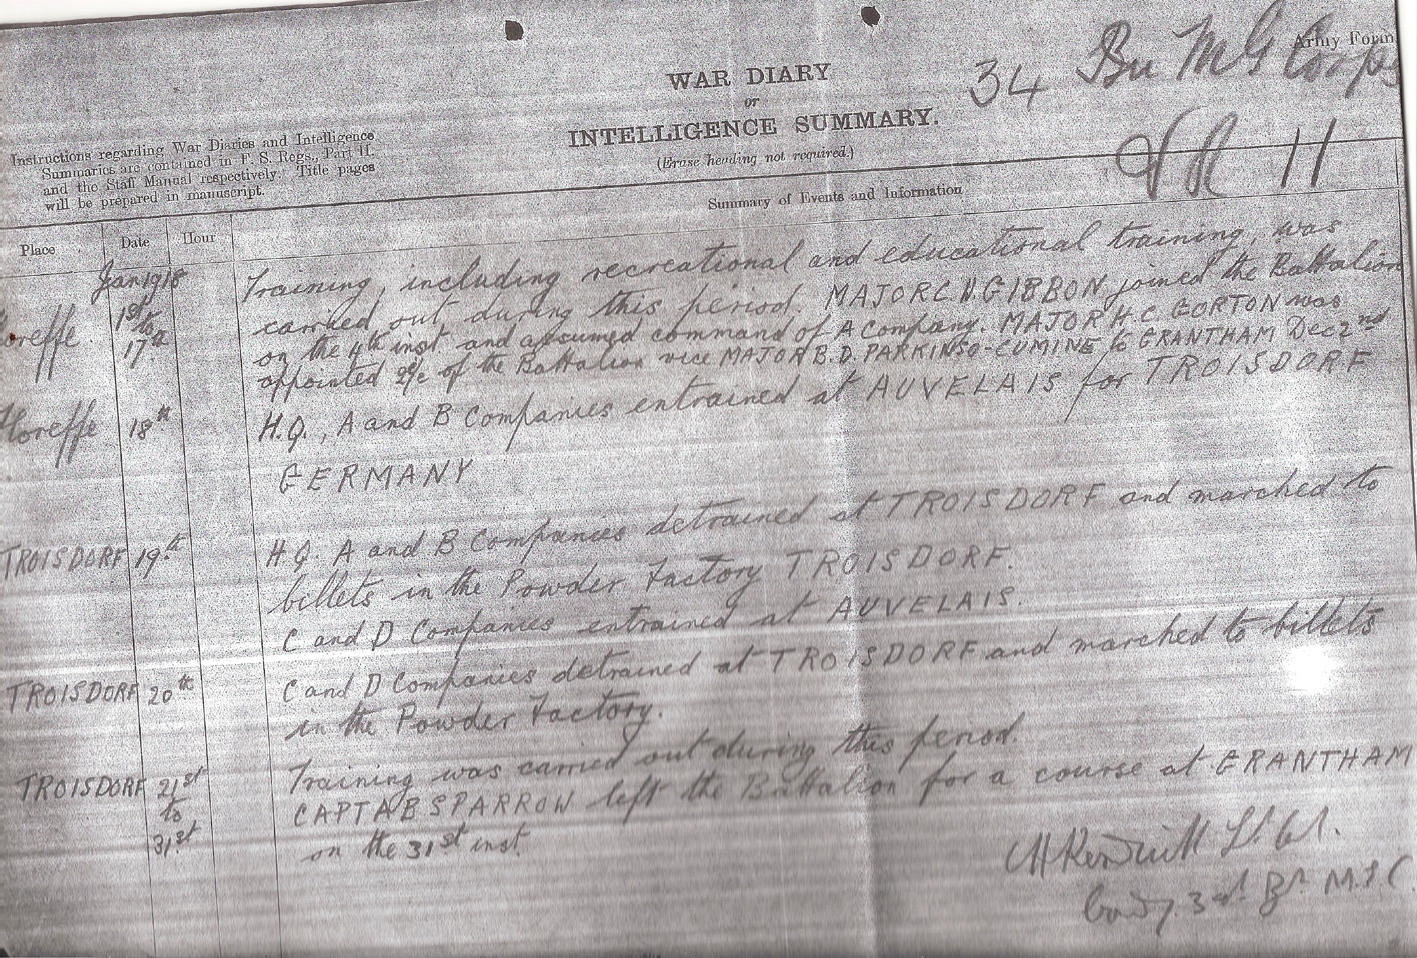 34 Bn M G Corps
Army Form
WAR DIARY
or
INTELLIGENCE SUMMARY.
(Erase heading not required.)
Instructions regarding War Diaries and Intelligence
Summaries are contained in F. S. Regs., Part II.
and the Staff Manual respectively. Title pages
will be prepared in manuscript.
11
Summary of Events and Information
Place Date Hour
Jan 1918
Floreffe. 1st to 17th
Training, including recreational and educational training, was
carried out during this period. MAJOR C V GIBBON joined the Battalion
on the 4th inst. and assumed command of A Company. MAJOR H.C. GORTON was
appointed 2 i/c of the Battalion vice MAJOR B.D. PARKINSO-CUMINE to GRANTHAM Dec 2nd
Floreffe 18th H.Q., A and B Companies entrained at AUVELAIS for TROISDORF
GERMANY
TROISDORF 19th H.Q. A and B Companies detrained at TROISDORF and marched to
billets in the Powder Factory TROISDORF.
C and D Companies entrained at AUVELAIS.
TROISDORF 20th C and D Companies detrained at TROISDORF and marched to billets
in the Powder Factory.
TROISDORF 21st to 31st Training was carried out during this period.
CAPT A B SPARROW left the Battalion for a course at GRANTHAM
on the 31st inst.
Lt Col.
Bn M.G.C.